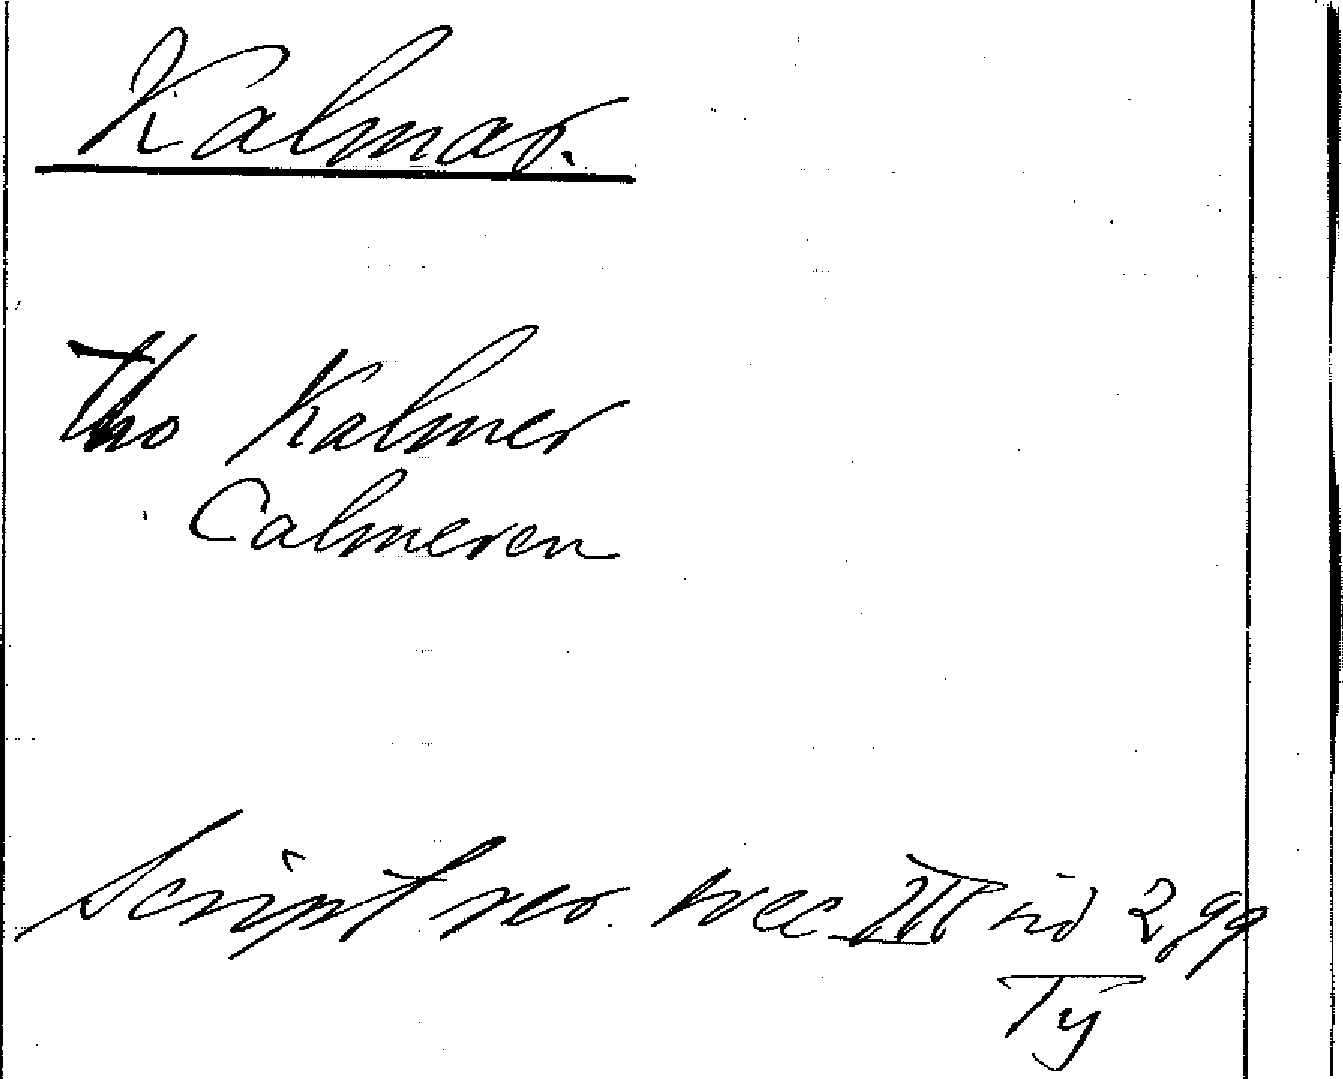 Kalmar.
tho Kalmer
Calmeren
Script rer. svec III sid 299
Ty